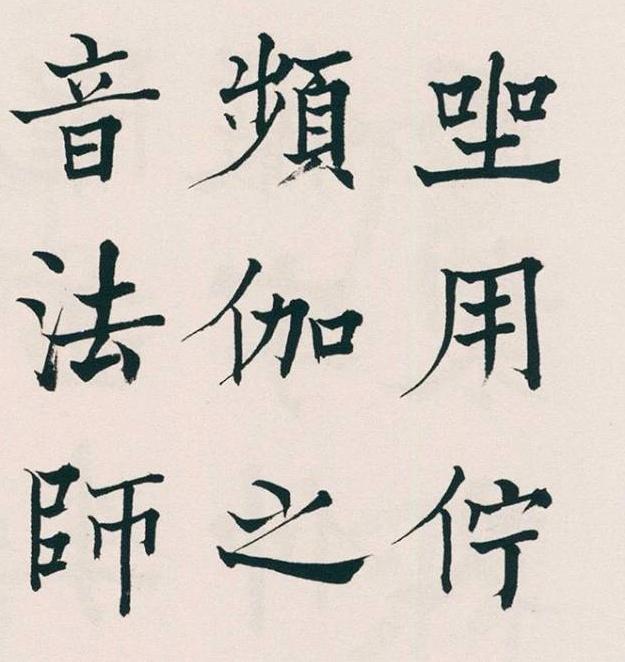 坐用佇
頻伽之
音法師